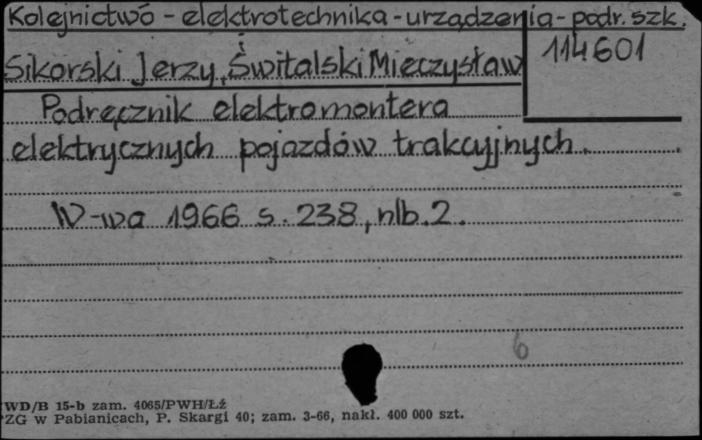 Kolejnictwo - elektrotechnika - urządzenia - podr. szk.
114601
Sikorski Jerzy, Świtalski Mieczysław
Podręcznik elektromontera
elektrycznych pojazdów trakcyjnych.
W-wa 1966 s. 238, nlb. 2.
6
WD/B 15-b zam. 4065/PWH/Łź
ZG w Pabianicach, P. Skargi 40; zam. 3-66, nakł. 400 000 szt.